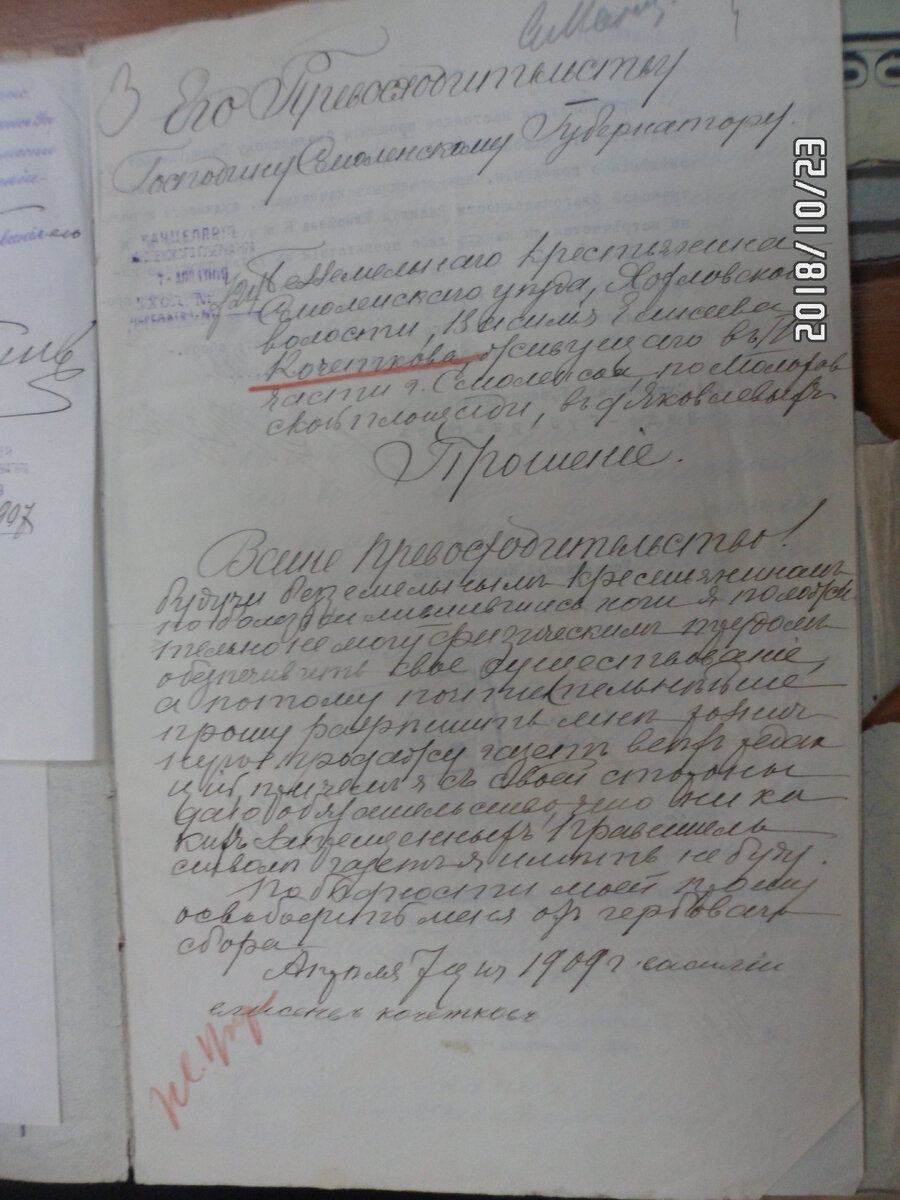 3
Его Превосходительству
Господину Смоленскому Губернатору.
КАНЦЕЛЯРІЯ
7 - АПР 1909
ВХОД. №
Безземельнаго Крестьянина
Смоленскаго уѣзда,
волости, Василія Елисеева
Кочеткова, живущаго въ
части г. Смоленска, по Молохов
ской площади, въ д. Яковлевыхъ
Прошеніе.
Ваше Превосходительство!
Будучи безземельнымъ крестьяниномъ
по болѣзни лишившись ноги я положи
тельно не могу физическимъ трудомъ
обезпечивать свое существованіе,
а потому почтительнѣйше
прошу разрѣшить мнѣ
продажу газетъ всѣхъ редак
цій, причемъ я съ своей стороны
даю обязательство, что ника
кихъ запрещенныхъ Правитель
ствомъ газетъ я имѣть не буду.
По бѣдности моей прошу
освободить меня отъ гербоваго
сбора
Апрѣля 7 дня 1909 г. василіи
елисеевъ кочетковъ
2018/10/23